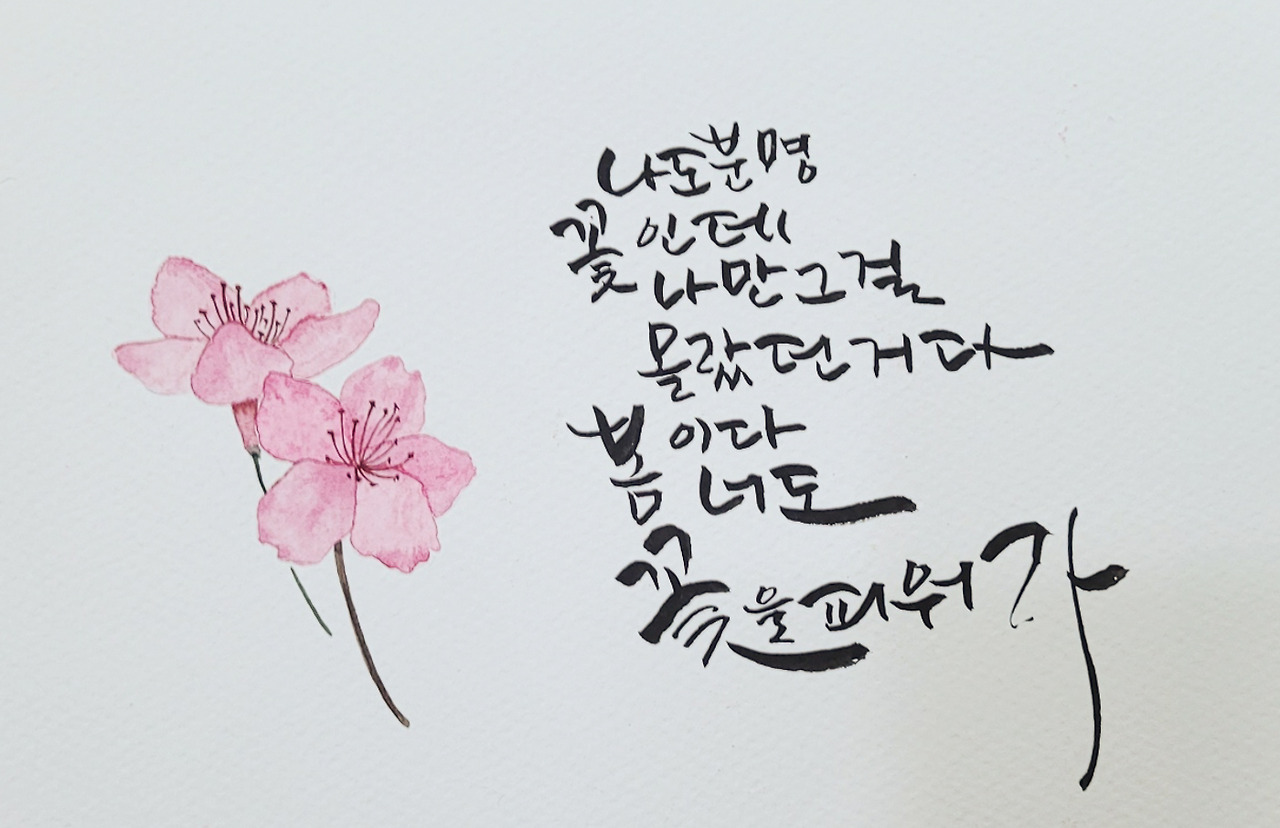 나도 분명
꽃인데
나만 그걸
몰랐던거다
봄이다
너도
꽃을 피워 가